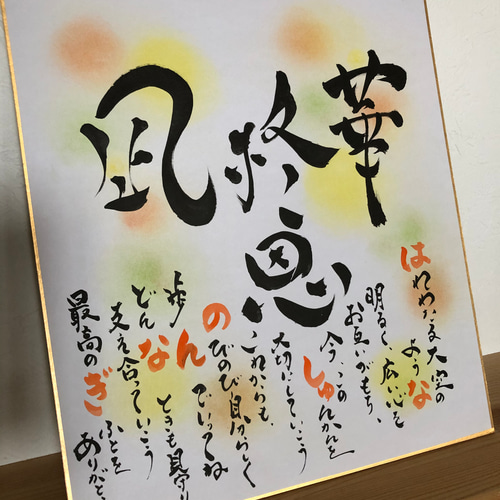 華
柊
恩
凪
はれわたる大空の
ような
明るく広い心を
お互いがもち、
今、この
しゅんかんを
大切にしていこう
これからも、
のびのび自分らしく
歩んでいってね
どんなときも見守り
支え合っていこう
最高のぎふとを
ありがとう